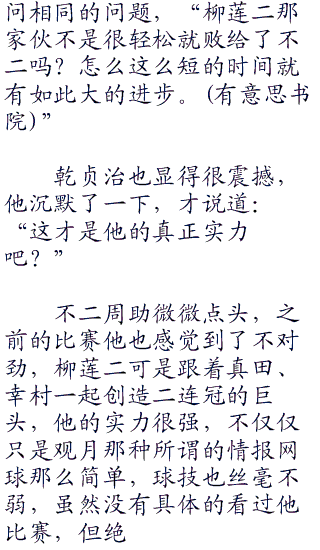 问相同的问题，“柳莲二那
家伙不是很轻松就败给了不
二吗？怎么这么短的时间就
有如此大的进步。(有意思书
院)”
乾贞治也显得很震撼，
他沉默了一下，才说道：
“这才是他的真正实力
吧？”
不二周助微微点头，之
前的比赛他也感觉到了不对
劲，柳莲二可是跟着真田、
幸村一起创造二连冠的巨
头，他的实力很强，不仅仅
只是观月那种所谓的情报网
球那么简单，球技也丝毫不
弱，虽然没有具体的看过他
比赛，但绝